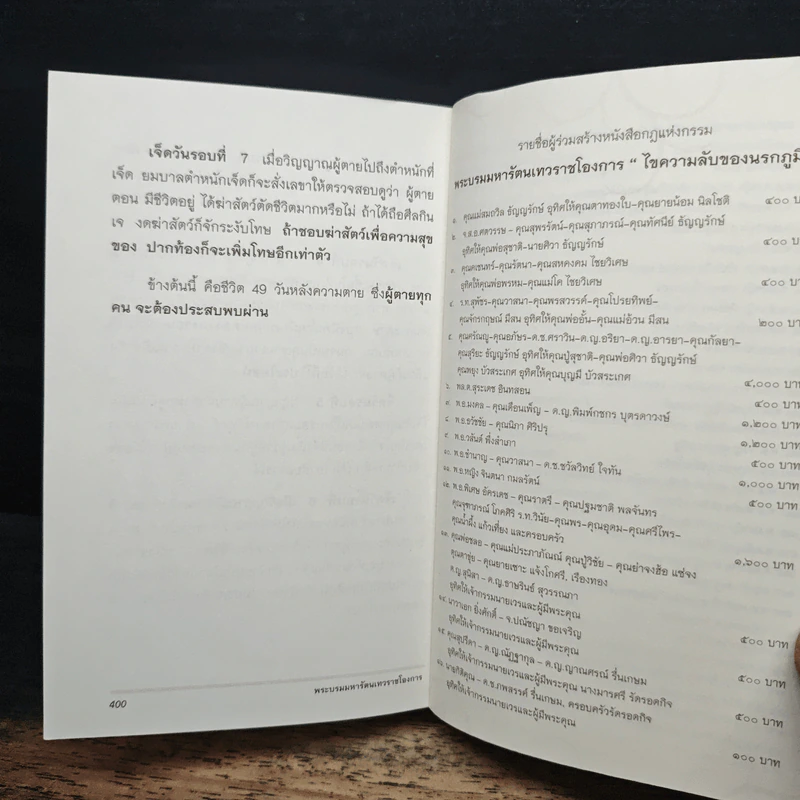 เจ็ดวันรอบที่ 7 เมื่อวิญญาณผู้ตายไปถึงตำหนักที่
เจ็ด ยมบาลตำหนักเจ็ดก็จะสั่งเลขาให้ตรวจสอบดูว่า ผู้ตาย
ตอน มีชีวิตอยู่ ได้ฆ่าสัตว์ตัดชีวิตมากหรือไม่ ถ้าได้ถือศีลกิน
เจ งดฆ่าสัตว์ก็จักระงับโทษ ถ้าชอบฆ่าสัตว์เพื่อความสุข
ของ ปากท้องก็จะเพิ่มโทษอีกเท่าตัว
ข้างต้นนี้ คือชีวิต 49 วันหลังความตาย ซึ่งผู้ตายทุก
คน จะต้องประสบพบผ่าน
พระบรมมหารัตนเทวราชโองการ
400
รายชื่อผู้ร่วมสร้างหนังสือกฎแห่งกรรม
พระบรมมหารัตนเทวราชโองการ “ ไขความลับของนรกภูมิ
๑. คุณแม่สมถวิล ธัญญรักษ์ อุทิศให้คุณตาทองใบ-คุณยายน้อม นิลโชติ ๔๐๐ บาท
๒. จ.ส.อ.ศตวรรษ - คุณสุพรรัตน์-คุณสุภาภรณ์-คุณทัศนีย์ ธัญญรักษ์
อุทิศให้คุณพ่อสุชาติ-นายศิวา ธัญญรักษ์ ๔๐๐ บาท
๓. คุณคเชนทร์-คุณรัตนา-คุณสหดงคม ไชยวิเศษ
อุทิศให้คุณพ่อพรหม-คุณแม่โต ไชยวิเศษ ๔๐๐ บาท
๔. ร.ท.สุพัชร-คุณวาสนา-คุณพรสวรรค์-คุณโปรยทิพย์-
คุณจักรกฤษณ์ มีสน อุทิศให้คุณพ่ออั้น-คุณแม่อ้วน มีสน ๒๐๐ บาท
๕. คุณศรัณญู-คุณอภัษร-ด.ช.ศราวิน-ด.ญ.อริยา-ด.ญ.อารยา-คุณกัลยา-
คุณสุริยะ ธัญญรักษ์ อุทิศให้คุณปู่สุชาติ-คุณพ่อศิวา ธัญญรักษ์
คุณพยุง บัวสระเกศ อุทิศให้คุณบุญมี บัวสระเกศ ๔,๐๐๐ บาท
๖. พล.ต.สุระเดช อินทสอน ๔๐๐ บาท
๗. พ.อ.มงคล - คุณเดือนเพ็ญ - ด.ญ.พิมพ์กชกร บุตรดาวงษ์ ๑,๒๐๐ บาท
๘. พ.อ.ธวัชชัย - คุณนิภา ศิริปรุ ๑,๒๐๐ บาท
๙. พ.อ.วสันต์ พึ่งสำเภา ๕๐๐ บาท
๑๐. พ.อ.ชำนาญ - คุณวาสนา - ด.ช.ชวัลวิทย์ ใจทัน ๑,๐๐๐ บาท
๑๑. พ.อ.หญิง จินตนา กมลรัตน์ ๕๐๐ บาท
๑๒. พ.อ.พิเศษ อัครเดช - คุณราตรี - คุณปฐมชาติ พลจันทร
คุณจุฑาภรณ์ โภคศิริ ร.ท.วินัย-คุณพร-คุณอุดม-คุณศรีไพร-
คุณน้ำผึ้ง แก้วเที่ยง และครอบครัว ๑,๖๐๐ บาท
๑๓. คุณพ่อชลอ - คุณแม่ประภาภัณณ์ คุณปู่วิชัย - คุณย่าจงฮ้อ แซ่จง
คุณตาชุ่ย - คุณยายเซาะ แจ้งโกศรี, เรืองทอง
ด.ญ.สุนิสา - ด.ญ.ธาษรินธ์ สุวรรณภา
อุทิศให้เจ้ากรรมนายเวรและผู้มีพระคุณ ๕๐๐ บาท
๑๔. นาวาเอก ยิ่งศักดิ์ - จ.ปณัชญา ขอเจริญ
อุทิศให้เจ้ากรรมนายเวรและผู้มีพระคุณ ๕๐๐ บาท
๑๕. คุณสุปรีดา - ด.ญ.ณัฏฐากุล - ด.ญ.ญาณศรณ์ รื่นเกษม
อุทิศให้เจ้ากรรมนายเวรและผู้มีพระคุณ นางมารศรี รัตรอดกิจ ๕๐๐ บาท
๑๖. นายกิติคุณ - ด.ช.ภพสรรค์ รื่นเกษม, ครอบครัวรัตรอดกิจ
อุทิศให้เจ้ากรรมนายเวรและผู้มีพระคุณ ๑๐๐ บาท